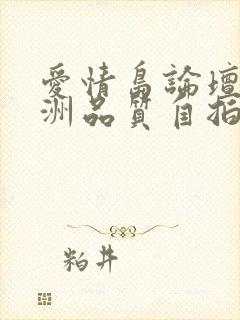 愛情島論壇
洲品質自拍
粕井